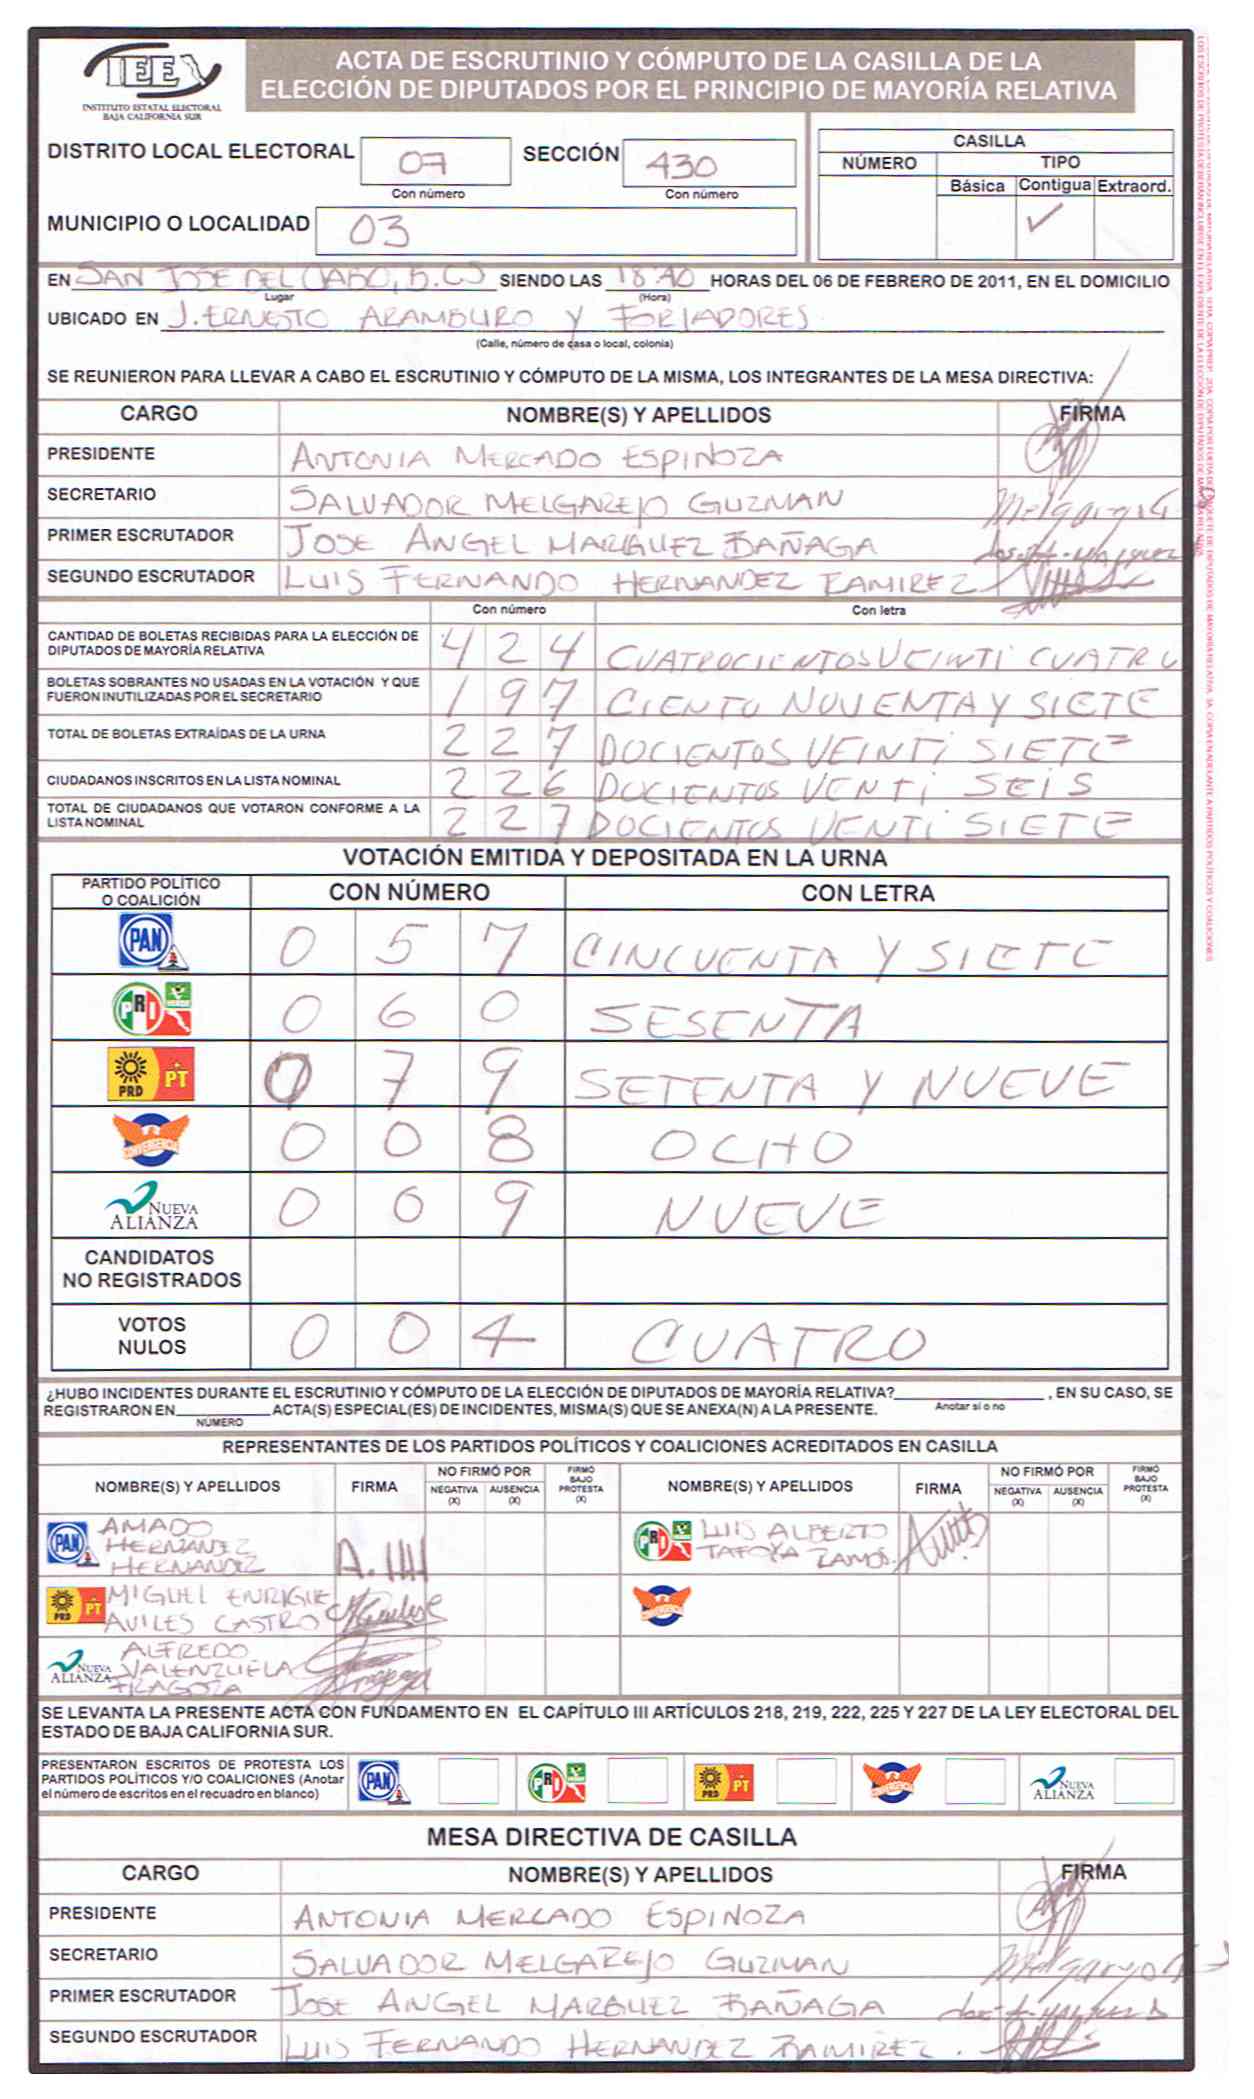 IEE
INSTITUTO ESTATAL ELECTORAL
BAJA CALIFORNIA SUR
ACTA DE ESCRUTINIO Y CÓMPUTO DE LA CASILLA DE LA
ELECCIÓN DE DIPUTADOS POR EL PRINCIPIO DE MAYORÍA RELATIVA
DISTRITO LOCAL ELECTORAL 07 SECCIÓN 430
Con número Con número
MUNICIPIO O LOCALIDAD 03
CASILLA
NÚMERO TIPO
Básica Contigua Extraord.
✓
EN SAN JOSE DEL CABO, B.CS SIENDO LAS 18:40 HORAS DEL 06 DE FEBRERO DE 2011, EN EL DOMICILIO
Lugar (Hora)
UBICADO EN J. ERNESTO ARAMBURO Y FORJADORES
(Calle, número de casa o local, colonia)
SE REUNIERON PARA LLEVAR A CABO EL ESCRUTINIO Y CÓMPUTO DE LA MISMA, LOS INTEGRANTES DE LA MESA DIRECTIVA:
CARGO NOMBRE(S) Y APELLIDOS FIRMA
PRESIDENTE ANTONIA MERCADO ESPINOZA
SECRETARIO SALVADOR MELGAREJO GUZMAN
PRIMER ESCRUTADOR JOSE ANGEL MARQUEZ BAÑAGA
SEGUNDO ESCRUTADOR LUIS FERNANDO HERNANDEZ RAMIREZ
Con número Con letra
CANTIDAD DE BOLETAS RECIBIDAS PARA LA ELECCIÓN DE
DIPUTADOS DE MAYORÍA RELATIVA 4 2 4 CUATROCIENTOS VEINTI CUATRO
BOLETAS SOBRANTES NO USADAS EN LA VOTACIÓN Y QUE
FUERON INUTILIZADAS POR EL SECRETARIO 1 9 7 CIENTO NOVENTA Y SIETE
TOTAL DE BOLETAS EXTRAÍDAS DE LA URNA 2 2 7 DOCIENTOS VEINTI SIETE
CIUDADANOS INSCRITOS EN LA LISTA NOMINAL 2 2 6 DOCIENTOS VENTI SEIS
TOTAL DE CIUDADANOS QUE VOTARON CONFORME A LA
LISTA NOMINAL 2 2 7 DOCIENTOS VENTI SIETE
VOTACIÓN EMITIDA Y DEPOSITADA EN LA URNA
PARTIDO POLÍTICO
O COALICIÓN CON NÚMERO CON LETRA
PAN 0 5 7 CINCUENTA Y SIETE
PRI 0 6 0 SESENTA
PRD PT 0 7 9 SETENTA Y NUEVE
CONVERGENCIA 0 0 8 OCHO
NUEVA
ALIANZA 0 0 9 NUEVE
CANDIDATOS
NO REGISTRADOS
VOTOS
NULOS 0 0 4 CUATRO
¿HUBO INCIDENTES DURANTE EL ESCRUTINIO Y CÓMPUTO DE LA ELECCIÓN DE DIPUTADOS DE MAYORÍA RELATIVA? , EN SU CASO, SE
Anotar sí o no
REGISTRARON EN ACTA(S) ESPECIAL(ES) DE INCIDENTES, MISMA(S) QUE SE ANEXA(N) A LA PRESENTE.
NÚMERO
REPRESENTANTES DE LOS PARTIDOS POLÍTICOS Y COALICIONES ACREDITADOS EN CASILLA
NOMBRE(S) Y APELLIDOS FIRMA NO FIRMÓ POR NEGATIVA (X) AUSENCIA (X) FIRMÓ BAJO PROTESTA (X) NOMBRE(S) Y APELLIDOS FIRMA NO FIRMÓ POR NEGATIVA (X) AUSENCIA (X) FIRMÓ BAJO PROTESTA (X)
PAN AMADO
HERNANDEZ
HERNANDEZ
PRI LUIS ALBERTO
TAFOYA RAMOS.
PRD PT MIGUEL ENRIQUE
AVILES CASTRO
CONVERGENCIA
NUEVA
ALIANZA ALFREDO
VALENZUELA
FRAGOZA
SE LEVANTA LA PRESENTE ACTA CON FUNDAMENTO EN EL CAPÍTULO III ARTÍCULOS 218, 219, 222, 225 Y 227 DE LA LEY ELECTORAL DEL
ESTADO DE BAJA CALIFORNIA SUR.
PRESENTARON ESCRITOS DE PROTESTA LOS
PARTIDOS POLÍTICOS Y/O COALICIONES (Anotar
el número de escritos en el recuadro en blanco)
PAN PRI PRD PT CONVERGENCIA NUEVA ALIANZA
MESA DIRECTIVA DE CASILLA
CARGO NOMBRE(S) Y APELLIDOS FIRMA
PRESIDENTE ANTONIA MERCADO ESPINOZA
SECRETARIO SALVADOR MELGAREJO GUZMAN
PRIMER ESCRUTADOR JOSE ANGEL MARQUEZ BAÑAGA
SEGUNDO ESCRUTADOR LUIS FERNANDO HERNANDEZ RAMIREZ.